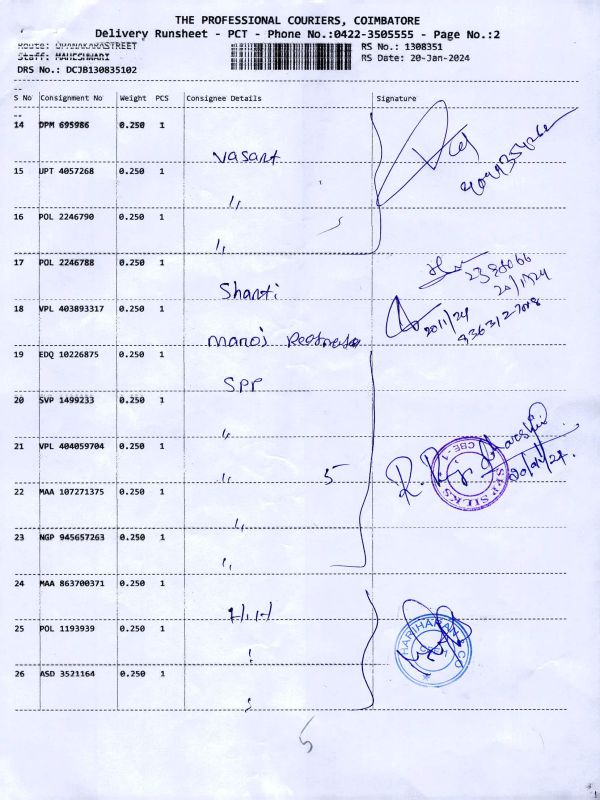 THE PROFESSIONAL COURIERS, COIMBATORE
Delivery Runsheet - PCT - Phone No.:0422-3505555 - Page No.:2
Route: UPANAKARASTREET RS No.: 1308351
Staff: MAHESHWARI RS Date: 20-Jan-2024
DRS No.: DCJB130835102
--
S No Consignment No Weight PCS Consignee Details Signature
--
14 DPM 695986 0.250 1
Vasant
15 UPT 4057268 0.250 1
"
16 POL 2246790 0.250 1
"
17 POL 2246788 0.250 1
Shanti 2388066
20/1/24
18 VPL 403893317 0.250 1
Manoj 20/1/24
19 EDQ 10226875 0.250 1
SPP
20 SVP 1499233 0.250 1
"
21 VPL 404059704 0.250 1
" 5
SPP SILKS CBE - 1
22 MAA 107271375 0.250 1
"
23 NGP 945657263 0.250 1
"
24 MAA 863700371 0.250 1
H.H
25 POL 1193939 0.250 1
HARIHARAN & CO
26 ASD 3521164 0.250 1
5